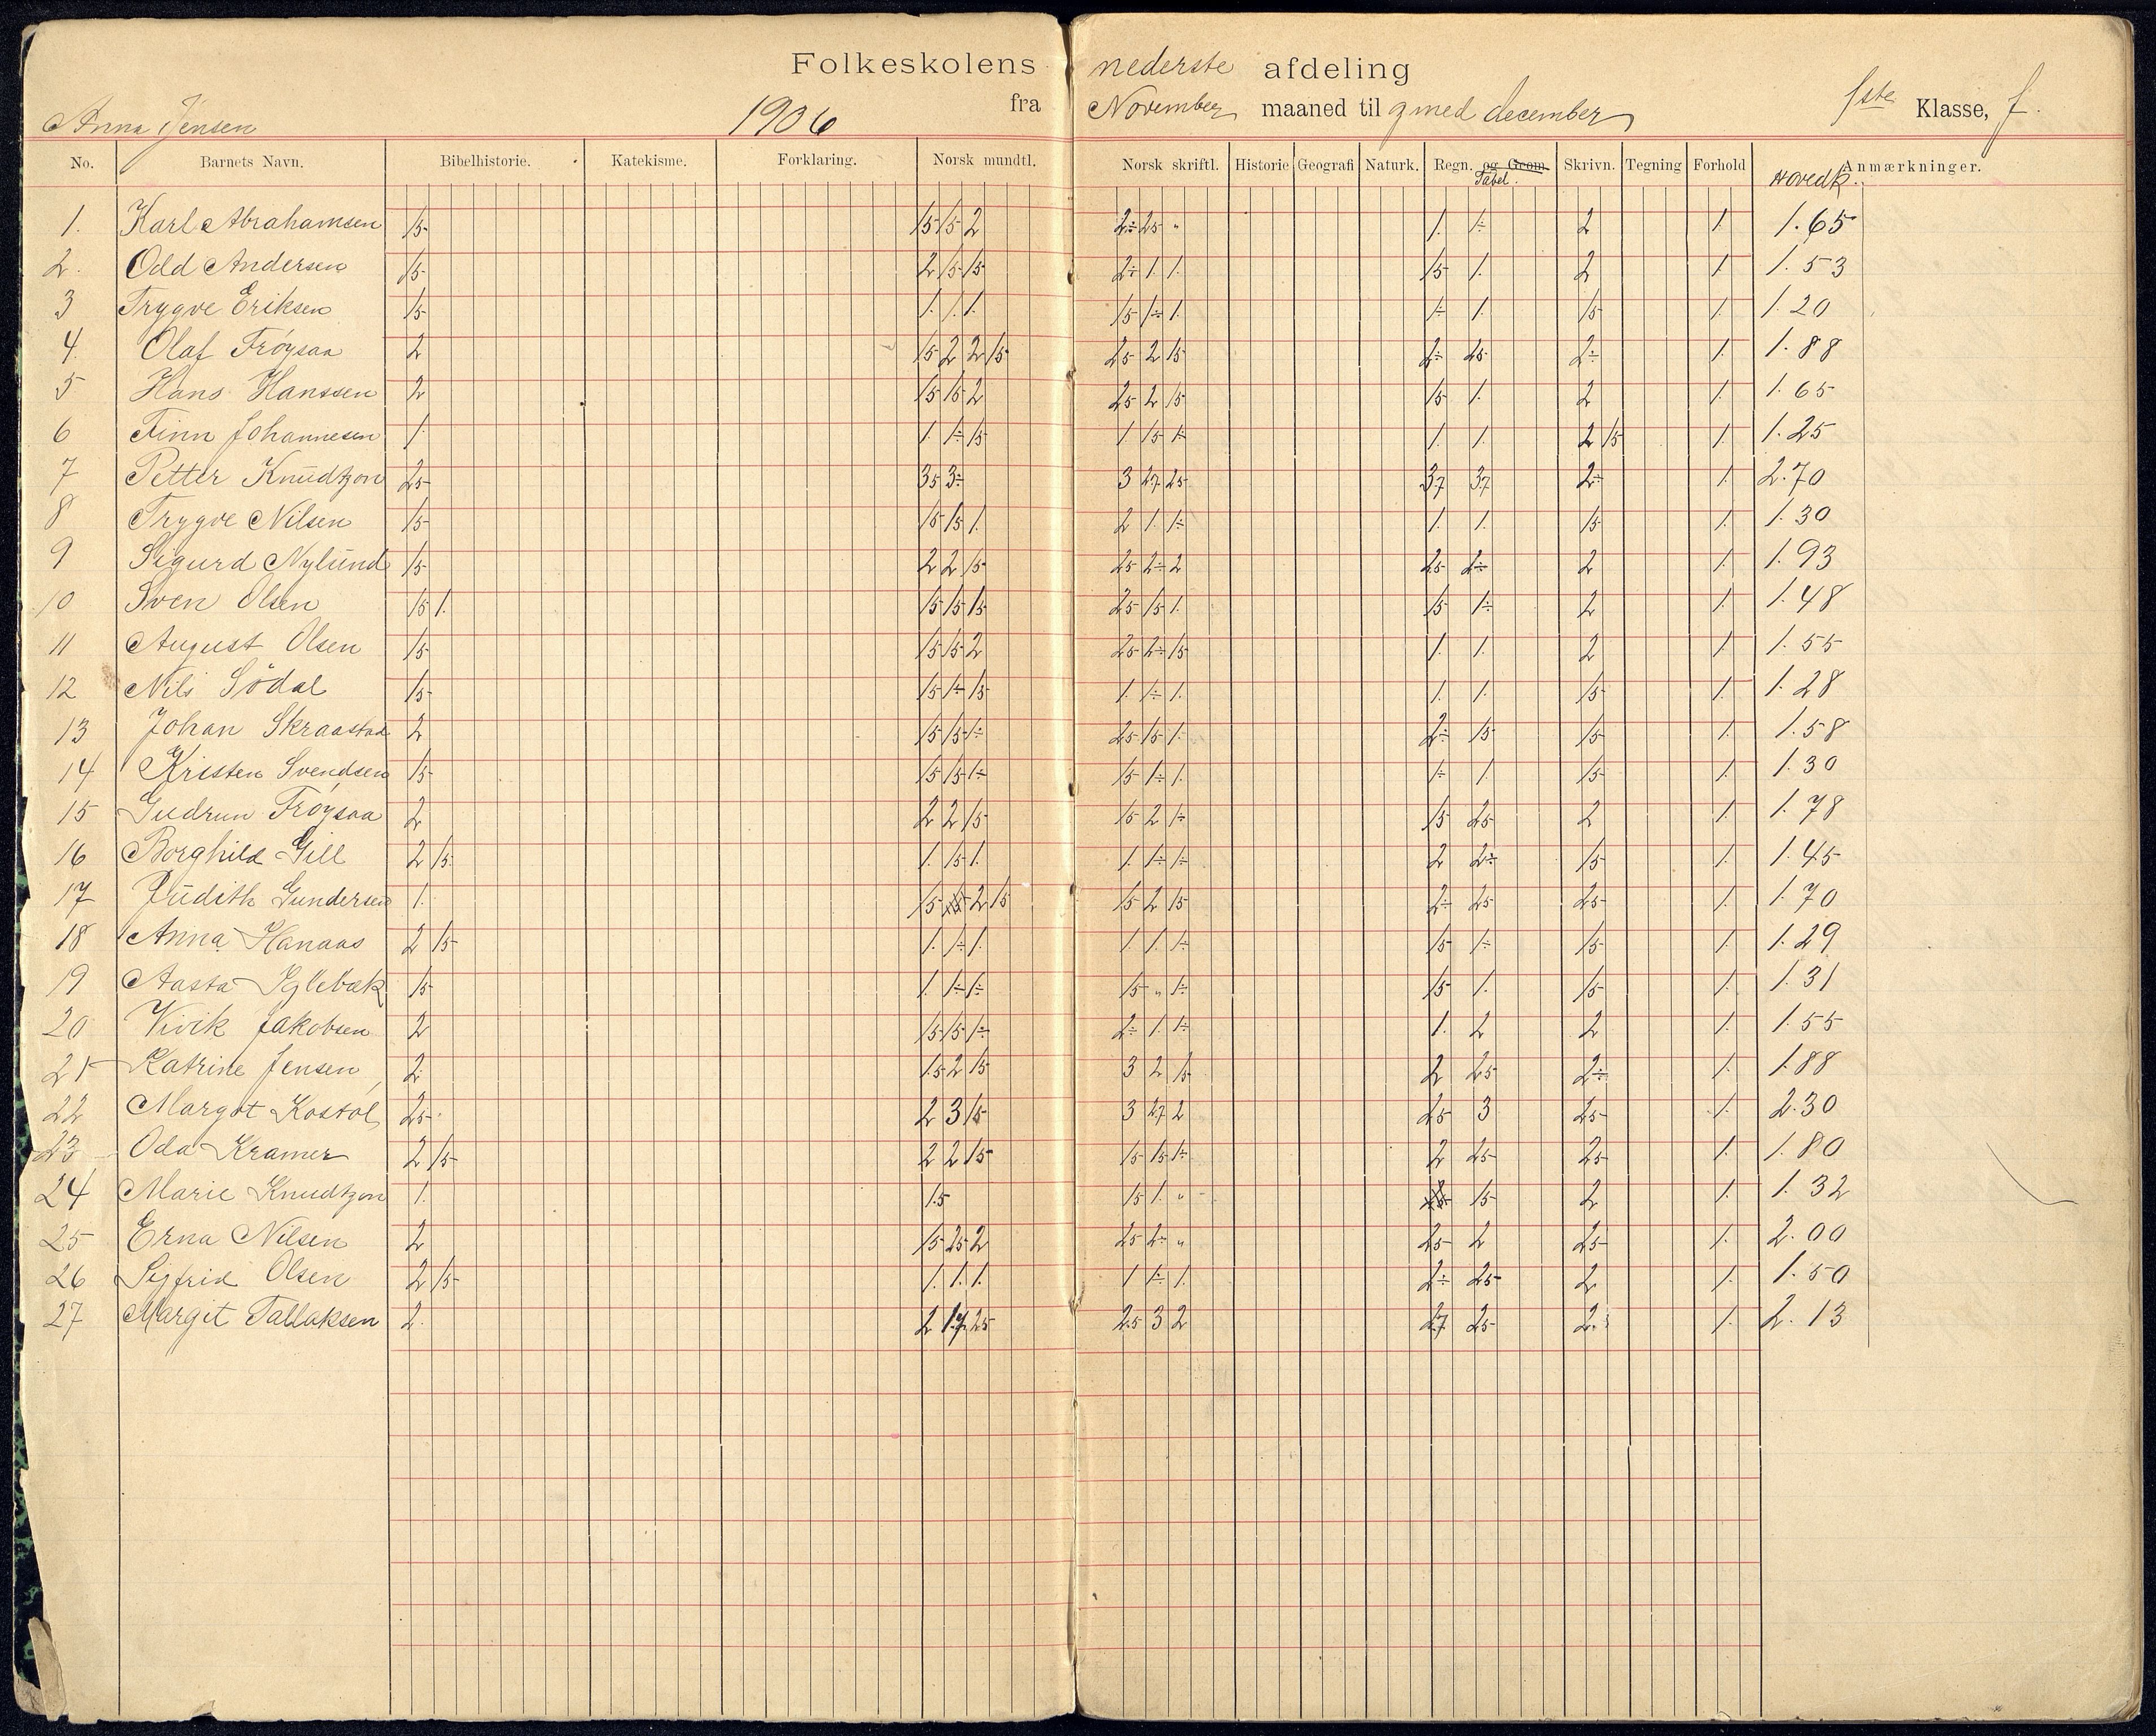 Folkeskolens nederste afdeling
Anna Jensen 1906 fra November maaned til med december 1ste Klasse, f.
No. Barnets Navn. Bibelhistorie. Katekisme. Forklaring. Norsk mundtl. Norsk skriftl. Historie Geografi Naturk. Regn. og Geom. Tabel. Skrivn. Tegning Forhold Hovedk. Anmærkninger.
1. Karl Abrahamsen 15 15 15 2 2÷ 25 " 1. 1÷ 2 1. 1.65
2. Odd Andersen 15 2 15 15 2÷ 1. 1. 15 1. 2 1. 1.53
3 Trygve Eriksen 15 1. 1. 1. 15 1÷ 1. 1÷ 1. 15 1. 1.20
4. Olaf Frøysaa 2 15 2 2 15 25 2 15 2÷ 25 2÷ 1. 1.88
5 Hans Hanssen 2 15 15 2 25 2 15 15 1. 2 1. 1.65
6 Finn Johannesen 1. 1. 1÷ 15 1 15 1÷ 1. 1. 2 15 1. 1.25
7 Petter Knudtzon 25 35 3÷ 3 27 25 37 37 2÷ 1. 2.70
8 Trygve Nilsen 15 15 15 1. 2 1. 1÷ 1. 1. 15 1. 1.30
9 Sigurd Nylund 15 2 2 15 25 2÷ 2 25 2÷ 2 1. 1.93
10 Sven Olsen 15 1. 15 15 15 25 15 1. 15 1÷ 2 1. 1.48
11 August Olsen 15 15 15 2 25 2÷ 15 1. 1. 2 1. 1.55
12 Nils Sødal 15 15 1÷ 15 1. 1÷ 1. 1. 1. 15 1. 1.28
13 Johan Skraastad 2 15 15 1÷ 25 15 1. 2÷ 15 15 1. 1.58
14 Kristen Svendsen 15 15 15 1÷ 15 1÷ 1. 1÷ 1. 15 1. 1.30
15 Gudrun Frøysaa 2 2 2 15 15 2 1÷ 15 25 2 1. 1.78
16 Borghild Gill 2 15 1. 15 1. 1. 1÷ 1÷ 2 2÷ 15 1. 1.45
17 Judith Gundersen 1. 15 2 15 15 2 15 2÷ 25 25 1. 1.70
18 Anna Hanaas 2 15 1. 1÷ 1. 1 1. 1÷ 15 1÷ 15 1. 1.29
19 Aasta Iglebæk 15 1. 1÷ 1÷ 15 " 1÷ 15 1. 15 1. 1.31
20 Vivik Jakobsen 2 15 15 1÷ 2÷ 1. 1÷ 1. 2 2 1. 1.55
21 Katrine Jensen 2 15 2 15 3 2 15 2 25 2÷ 1. 1.88
22 Margot Kostøl 25 2 3 15 3 27 2 25 3 25 1. 2.30
23 Oda Kramer 2 15 2 2 15 15 15 1÷ 2 25 25 1. 1.80
24 Marie Knudtzon 1. 1.5 15 1. " 15 2 1. 1.32
25 Erna Nilsen 2 15 25 2 25 2÷ " 25 2 25 1. 2.00
26 Sigfrid Olsen 2 15 1. 1. 1. 1 1÷ 1. 2÷ 25 2 1. 1.50
27 Margit Tallaksen 2. 2 17 25 25 3 2 27 25 2. 1. 2.13